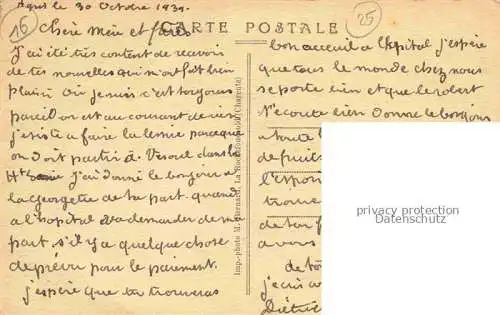 le 30 Octobre 1939.
16
25
CARTE POSTALE
Chère Mère et frères
J'ai été très content de recevoir
de tes nouvelles qui m'ont fait bien
plaisir Où je suis c'est toujours
pareil on est au courant de rien
a faire la parceque
on doit partir à Vesoul dans la
Hte Saône J'ai donné le bonjour a
la Georgette de ta part quand
a l'hopital va demander de ma
part, s'il y a quelque chose
de prévu pour le paiement.
j'espère que tu trouveras
Imp.-photo M. La Rochefoucauld (Charente)
bon acceuil a l'hopital j'espère
que tous le monde chez nous
se porte bien et que le robert
t'ecoute bien Donne le bonjour
a toute
de fruits
l'espoir
trouve
de ton f
avons
de to
je suis
privacy protection
Datenschutz